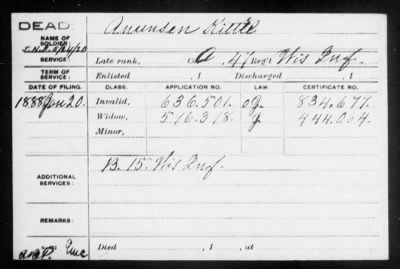 DEAD
NAME OF SOLDIER: Amunsen Kittle
SERVICE: Late rank, Co. 47 Reg't Wis Inf.
TERM OF SERVICE: Enlisted , 1 Discharged , 1
DATE OF FILING. CLASS. APPLICATION NO. LAW CERTIFICATE NO.
1888 Jan 20. Invalid, 636.501. 834.677.
Widow, 516.318. 444.064.
Minor,
ADDITIONAL SERVICES: B. 15. Wis Inf.
REMARKS:
Died , 1 , at